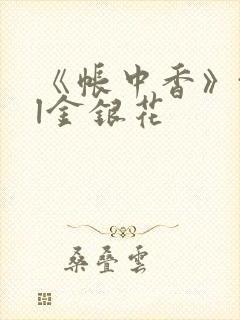 《帐中香》
|金银花
桑叠云